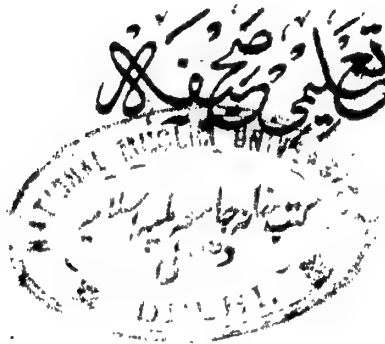 تعلیمی صحیفہ
NATIONAL MUSLIM UNIVERSITY
کتب خانہ جامعہ ملیہ اسلامیہ
دہلی
DELHI